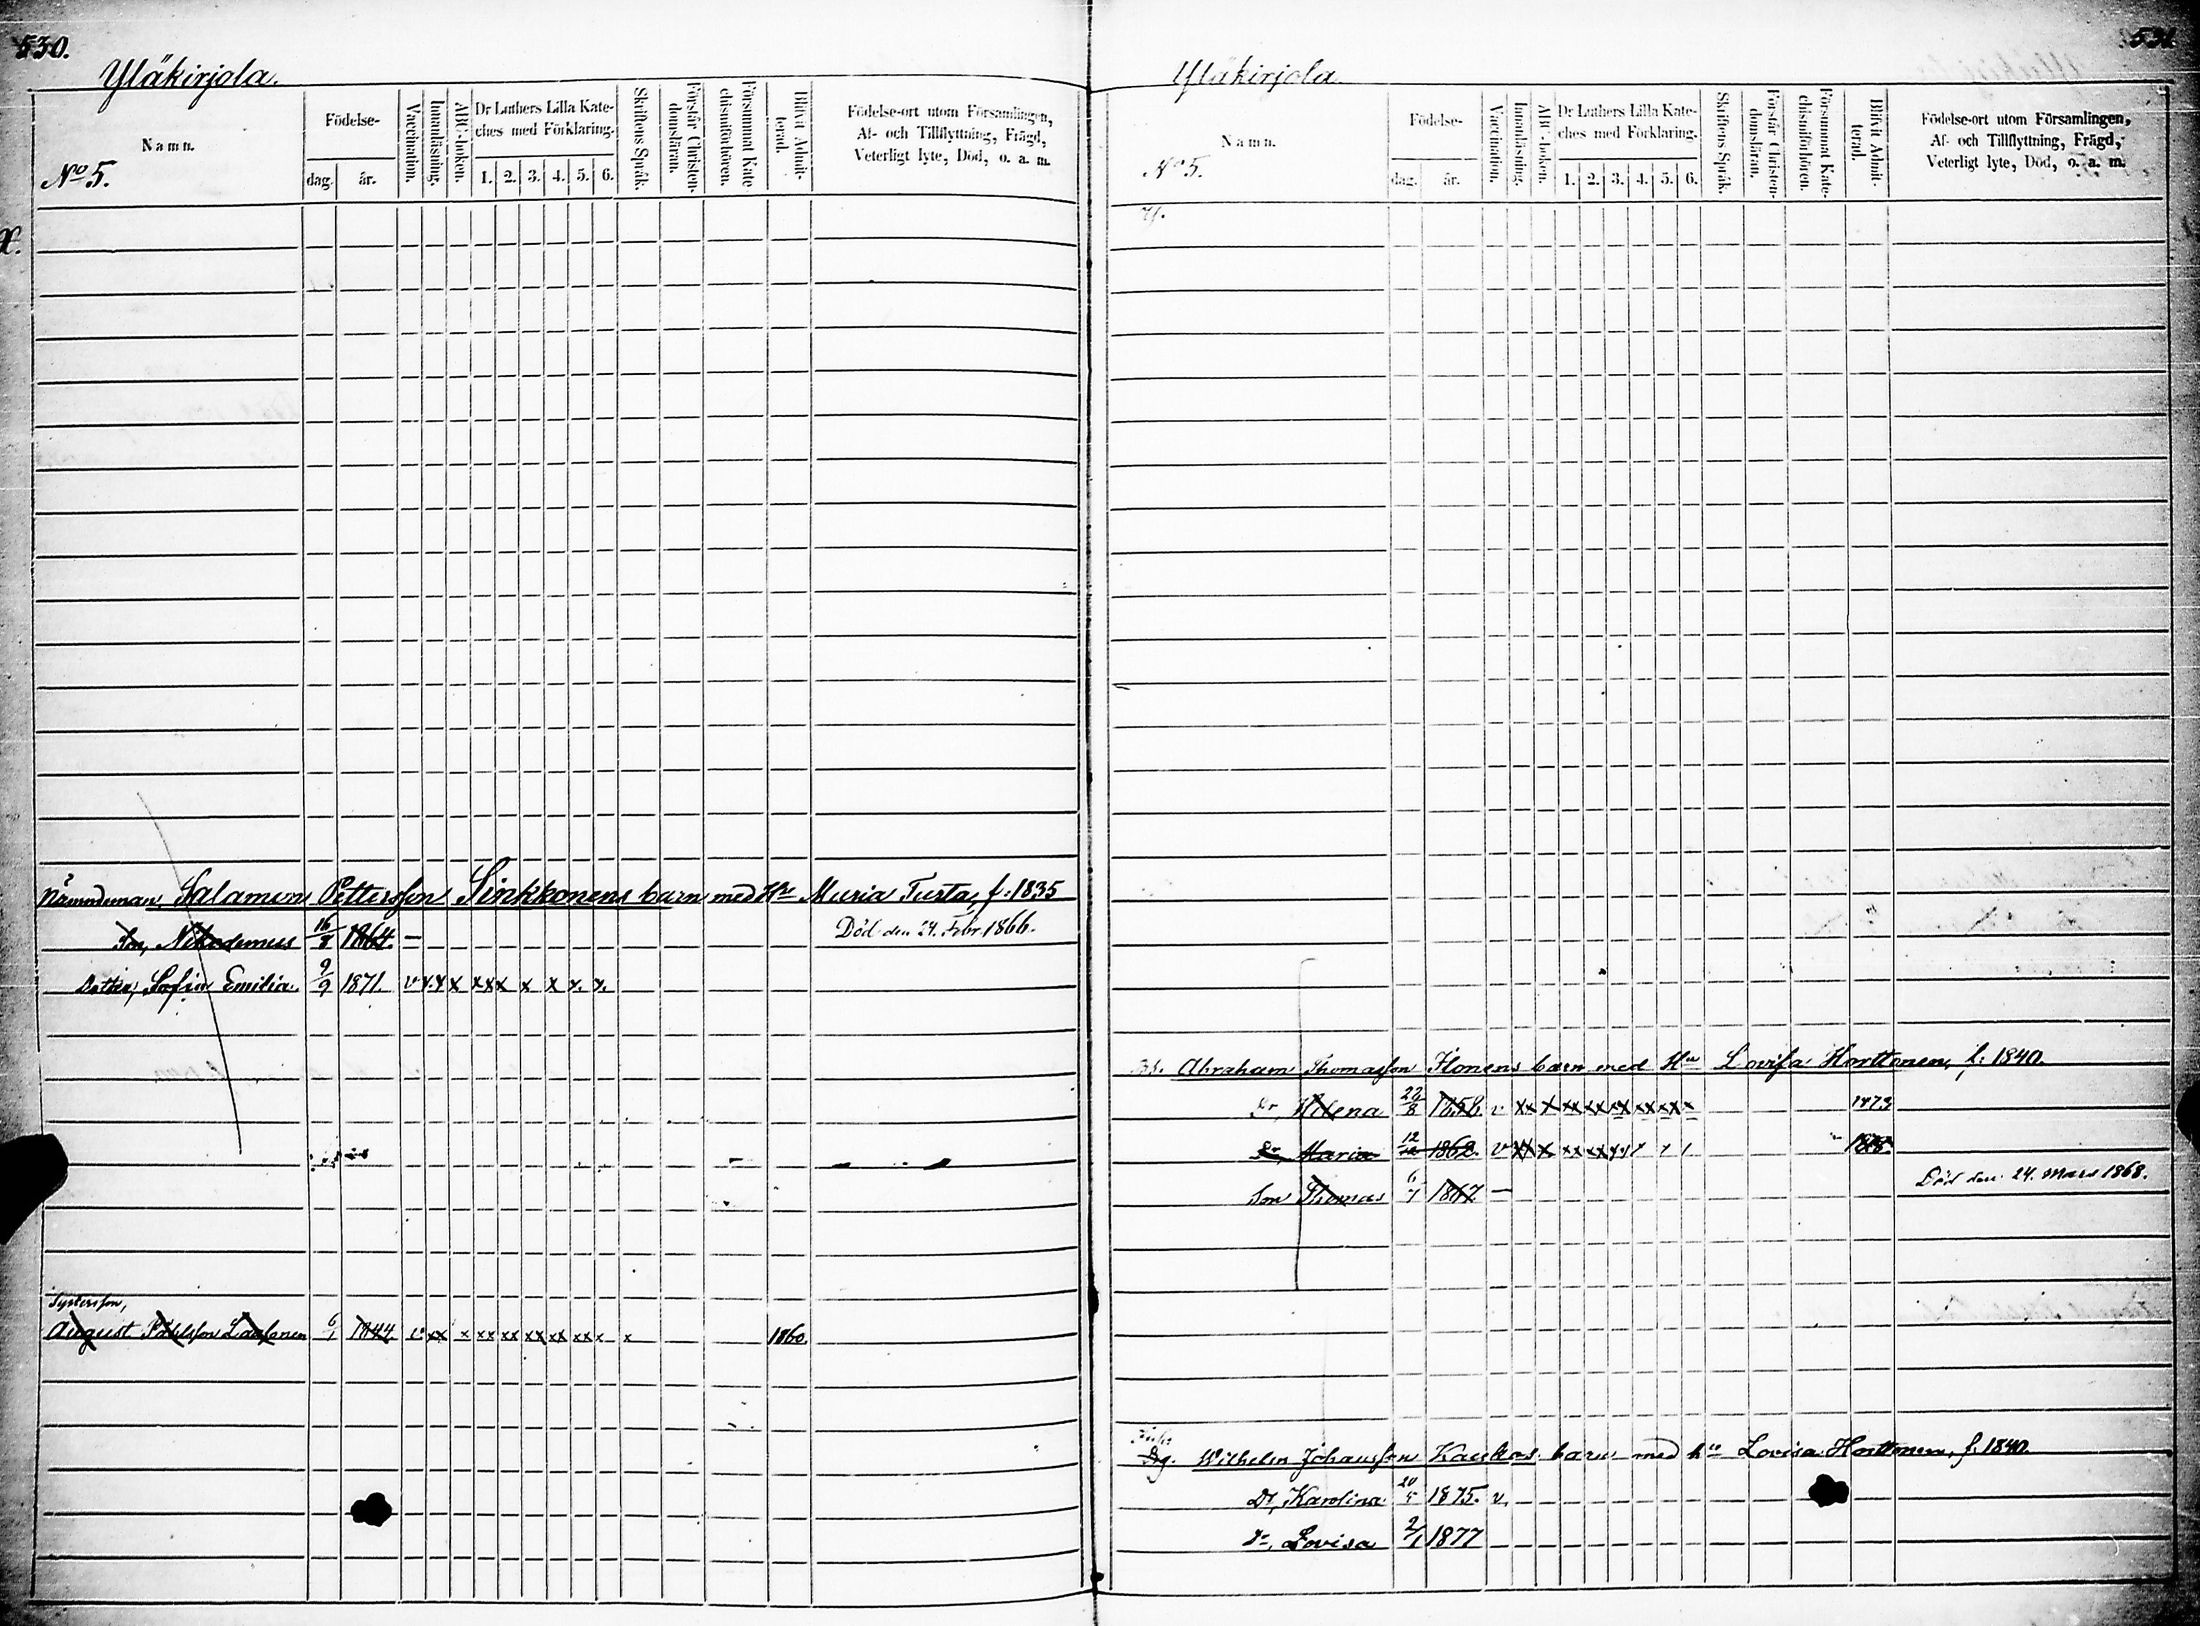 530.
Yläkirjola.
Namn.
No 5.
Födelse-
dag. år.
Vaccination.
Innanläsning.
ABC-boken.
Dr Luthers Lilla Kate-
ches med Förklaring.
1. 2. 3. 4. 5. 6.
Skriftens Språk.
Förstår Christen-
domsläran.
Försummat Kate-
chismiförhören.
Blifvit Admit-
terad.
Födelse-ort utom Församlingen,
Af- och Tillflyttning, Frägd,
Veterligt lyte, Död, o. a. m.
Nämndeman, Salamon Pettersson Sinkkonens barn med Hu Maria Turta, f. 1835
Son, Nikodemus 16/8 1864 — Död den 24. Febr. 1866.
Dotter, Sofia Emilia. 9/9 1871. v x x x x x x x x x. x.
Systerson,
August Påhlsson Laasonen 6/1 1844 v xx x xx xx xx xx xx x x 1860.
531
Yläkirjola.
Namn.
No 5.
Födelse-
dag. år.
Vaccination.
Innanläsning.
ABC-boken.
Dr Luthers Lilla Kate-
ches med Förklaring.
1. 2. 3. 4. 5. 6.
Skriftens Språk.
Förstår Christen-
domsläran.
Försummat Kate-
chismiförhören.
Blifvit Admit-
terad.
Födelse-ort utom Församlingen,
Af- och Tillflyttning, Frägd,
Veterligt lyte, Död, o. a. m.
Abraham Thomasson Ilonens barn med Hu Lovisa Horttonen, f. 1840.
Dr, Helena 22/8 1858 v xx x xx xx xx xx xx x 1873
Dr, Maria 12/12 1862. v xx x xx xx
Son Thomas 6/1 1867 — Död den 24. Mars 1868.
Dg. Wilhelm Johansson Kaukos barn med hu Lovisa Horttonen, f. 1840.
Dr, Karolina 20/5 1875. v.
Dr, Lovisa 2/1 1877